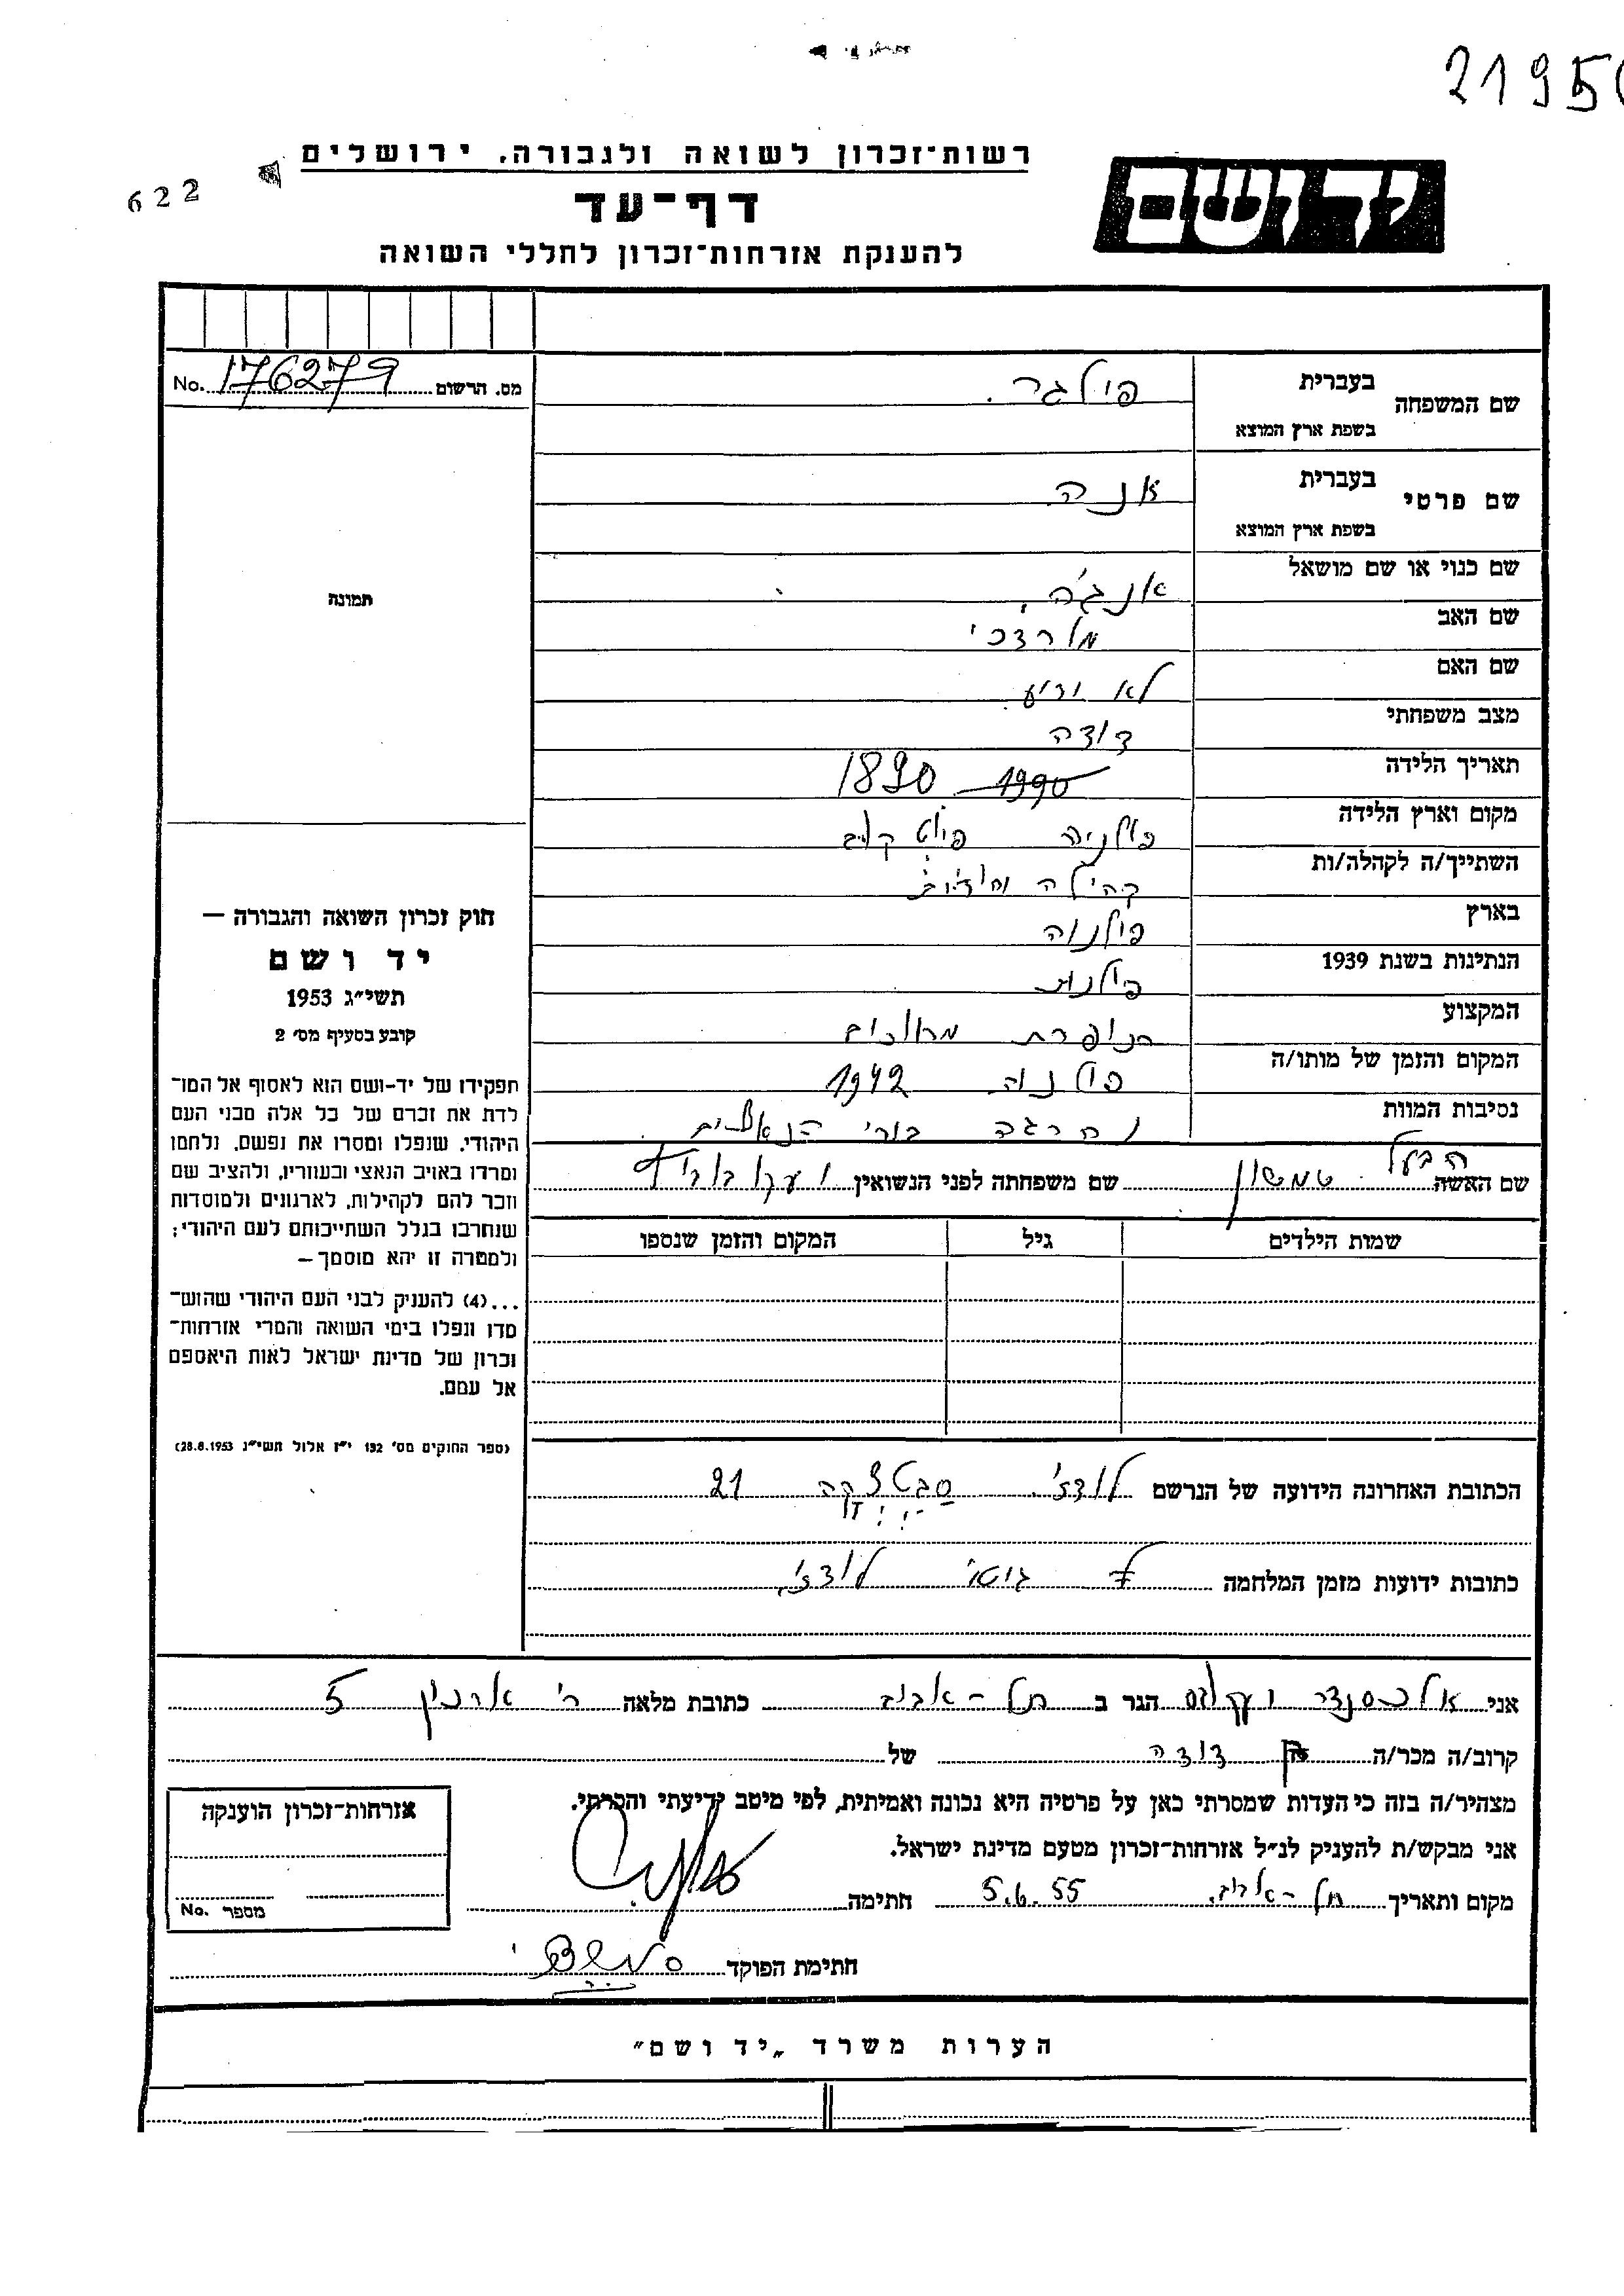 2195
רשות־זכרון לשואה ולגבורה, ירושלים
622
דף־עד
יד ושם
להענקת אזרחות־זכרון לחללי השואה
מס. הרשום 176279 No.
שם המשפחה בעברית פילגר.
בשפת ארץ המוצא
שם פרטי בעברית אנה
בשפת ארץ המוצא
שם כנוי או שם מושאל אנג'ה
תמונה
שם האב מרדכי
שם האם לא ידוע
מצב משפחתי דודה
תאריך הלידה 1990 1890
מקום וארץ הלידה פולניה
השתייך/ה לקהלה/ות קהילה
בארץ פולניה
הנתינות בשנת 1939 פולנית
המקצוע
המקום והזמן של מותו/ה פולניה 1942
נסיבות המוות נהרגה בידי הנאצים
חוק זכרון השואה והגבורה —
יד ושם
תשי״ג 1953
קובע בסעיף מס׳ 2
תפקידו של יד-ושם הוא לאסוף אל המו־
לדת את זכרם של כל אלה מבני העם
היהודי, שנפלו ומסרו את נפשם, נלחמו
ומרדו באויב הנאצי ובעוזריו, ולהציב שם
וזכר להם לקהילות, לארגונים ולמוסדות
שנחרבו בגלל השתייכותם לעם היהודי;
ולמטרה זו יהא מוסמך —
...(4) להעניק לבני העם היהודי שהוש־
מדו ונפלו בימי השואה והמרי אזרחות־
זכרון של מדינת ישראל לאות היאספם
אל עמם.
(ספר החוקים מס׳ 132 י״ז אלול תשי״ג 28.8.1953)
הבעל
שם האשה שמשון שם משפחתה לפני הנשואין
שמות הילדים גיל המקום והזמן שנספו
הכתובת האחרונה הידועה של הנרשם לודז' 21
כתובות ידועות מזמן המלחמה גיטו לודז'
אני אלכסנדר הגר ב תל-אביב כתובת מלאה רח' 5
קרוב/ה מכר/ה דודה של
מצהיר/ה בזה כי העדות שמסרתי כאן על פרטיה היא נכונה ואמיתית, לפי מיטב ידיעתי והכרתי.
אני מבקש/ת להעניק לנ״ל אזרחות־זכרון מטעם מדינת ישראל.
מקום ותאריך תל-אביב. 5.6.55 חתימה
אזרחות־זכרון הוענקה
מספר No.
חתימת הפוקד
הערות משרד „יד ושם״